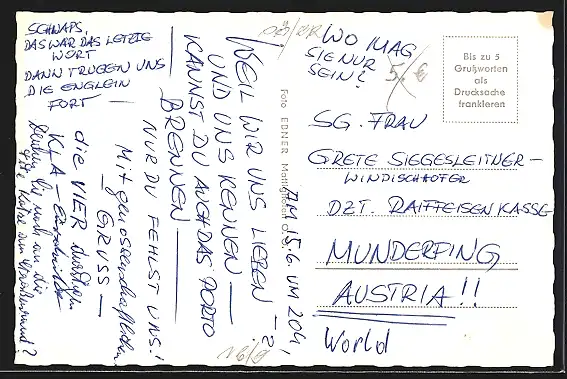 SCHNAPS,
DAS WAR DAS LETZTE
WORT
DANN TRUGEN UNS
DIE ENGLEIN
FORT —
WEIL WIR UNS LIEBEN
UND UNS KENNEN —
KANNST DU AUCH DAS PORTO
BRENNEN —
NUR DU FEHLST UNS!
Mit genossenschaftlichem
GRUSS —
die VIER durstigen
KLA —
Denken Sie noch an die
AM 15.6. UM 20h,
— ?
Foto EBNER Mattighofen
WO MAG
SIE NUR
SEIN?
5,- €
Bis zu 5
Grußworten
als
Drucksache
frankieren
SG. FRAU
GRETE SIEGESLEITNER —
WINDISCHHOFER
DZT. RAIFFEISENKASSE
MUNDERFING
AUSTRIA!!
World